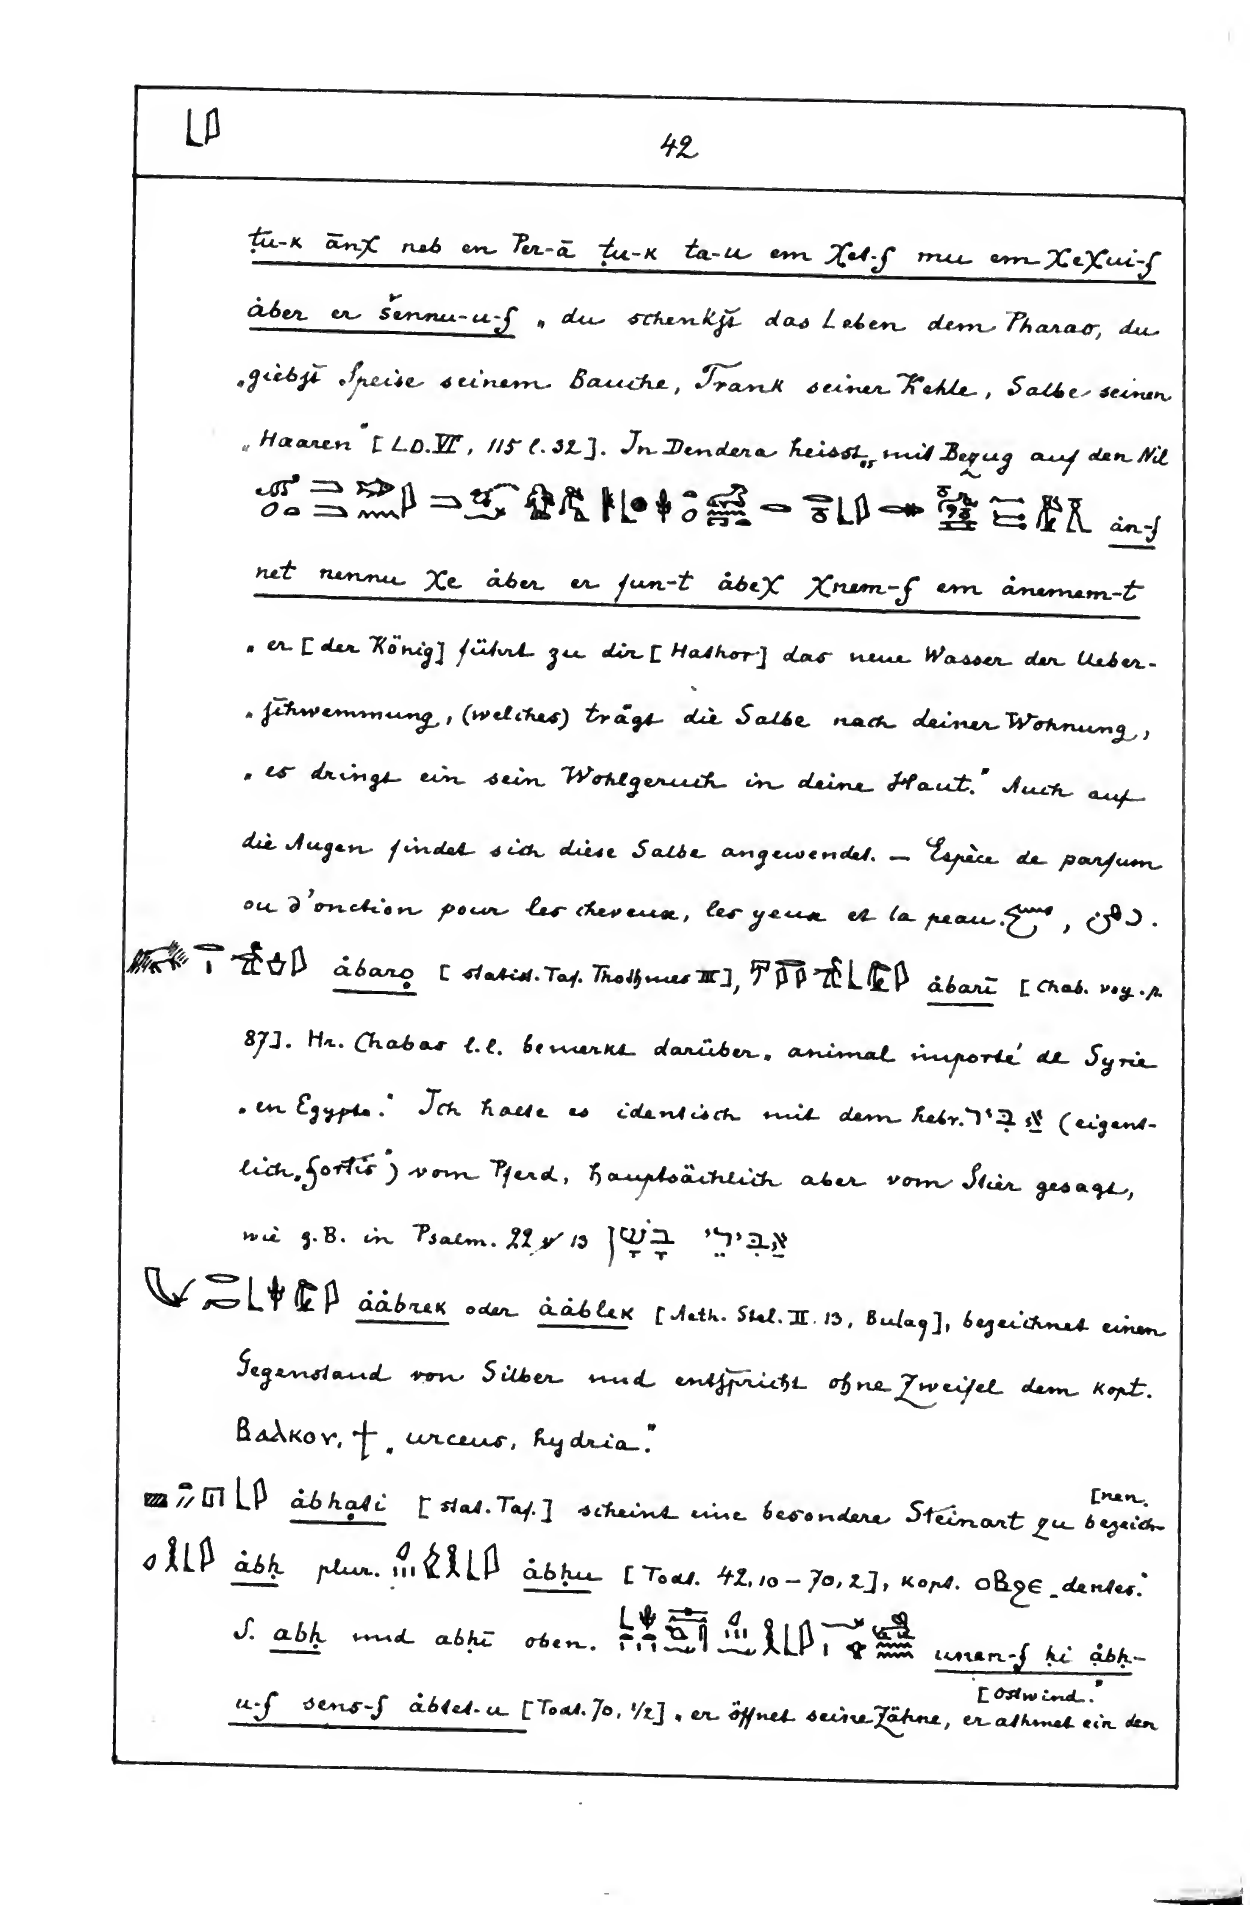 𓃀𓇋
42
ṭu-k ānχ neb en Per-ā ṭu-k ta-u em χet-f mu em χeχui-f
ȧber er šennu-u-f „du schenkst das Leben dem Pharao, du
„giebst Speise seinem Bauche, Trank seiner Kehle, Salbe seinen
„Haaren" [L.D. VI, 115 l. 32]. In Dendera heisst es mit Bezug auf den Nil
ȧn-f
net nennu χe ȧber er fun-t ȧbeχ χnem-f em ȧnemem-t
„er [der König] führt zu dir [Hathor] das neue Wasser der Ueber-
„schwemmung, (welches) trägt die Salbe nach deiner Wohnung,
„es dringt ein sein Wohlgeruch in deine Haut." Auch auf
die Augen findet sich diese Salbe angewendet. — Espèce de parfum
ou d'onction pour les cheveux, les yeux et la peau. مسح, دهن.
ȧbarọ [statist. Taf. Thothmes III], ȧbarī [Chab. voy. p.
87]. Hr. Chabas l.l. bemerkt darüber „animal importé de Syrie
„en Egypte." Ich halte es identisch mit dem hebr. אַבִּיר (eigent-
lich „fortis") vom Pferd, hauptsächlich aber vom Stier gesagt,
wie z.B. in Psalm. 22 v 13 אַבִּירֵי בָשָׁן
ȧȧbrek oder ȧȧblek [Aeth. Stel. II. 13, Bulaq], bezeichnet einen
Gegenstand von Silber und entspricht ohne Zweifel dem kopt.
Ⲃⲁⲗⲕⲟⲩ, † „urceus, hydria."
ȧbhạti [stat. Taf.] scheint eine besondere Steinart zu bezeich-
[nen.
ȧbḥ plur. ȧbḥu [Todt. 42,10 – 70,2], kopt. ⲟⲃϩⲉ „dentes."
S. abḥ und abḥī oben. unen-f ḥi ȧbḥ-
u-f sens-f ȧbtet-u [Todt. 70, 1/2] „er öffnet seine Zähne, er athmet ein den
[Ostwind."